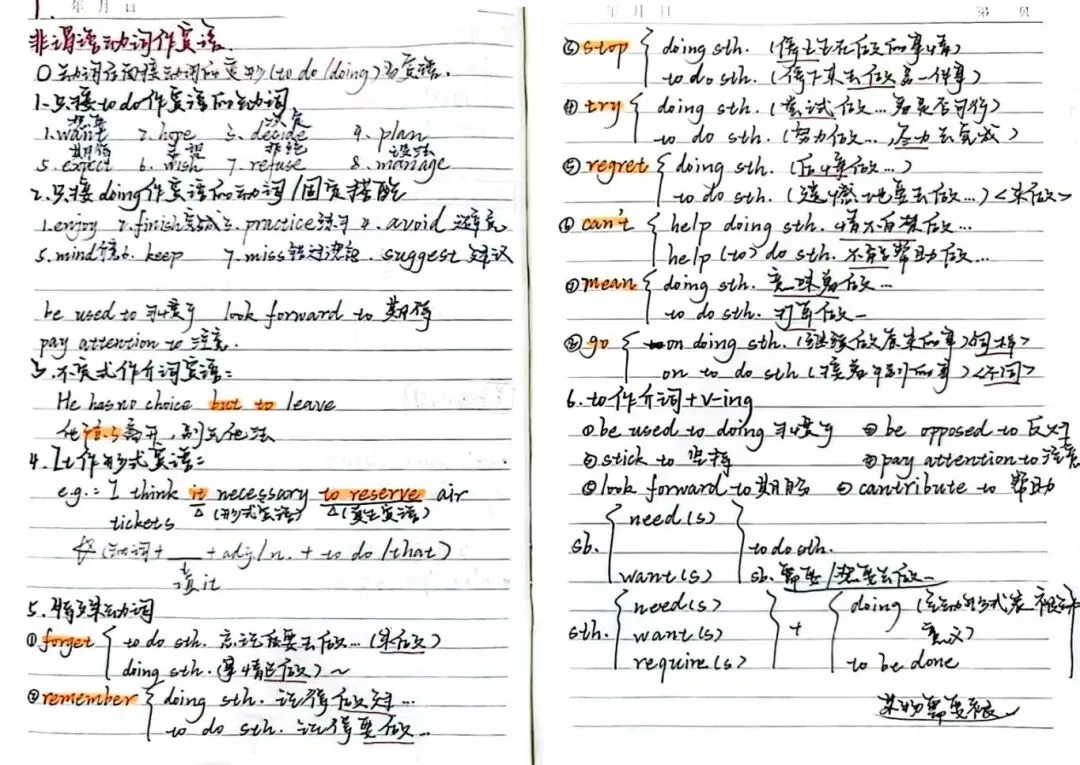 1.
年 月 日
非谓语动词作宾语.
○动词后面接动词的变形(to do/doing)为宾语.
1.只接to do作宾语的动词
想要 决定
1.want 2.hope 3.decide 4.plan
期待 希望 拒绝 设法
5.expect 6.wish 7.refuse 8.manage
2.只接doing作宾语的动词/固定搭配
1.enjoy 2.finish完成 3.practice练习 4.avoid 避免
5.mind 6.keep 7.miss错过 suggest 建议
be used to 习惯于 look forward to 期待
pay attention to 注意.
3.不定式作介词宾语:
He has no choice but to leave
他 离开,别无他法
4.It作形式宾语:
e.g.: I think it necessary to reserve air
(形式宾语) (真正宾语)
tickets
(动词+ ___ +adj/n. + to do/that)
填it
5.特殊动词
①forget { to do sth. 忘记 要去做… (未做)
doing sth. (事情已做) ~
②remember { doing sth. 记得做过…
to do sth. 记得要做…
年 月 日 第 页
③stop { doing sth. (停止正在做的事情)
to do sth. (停下来去做另一件事)
④try { doing sth. (尝试做… 看是否可行)
to do sth. (努力做…,尽力去完成)
⑤regret { doing sth. (后悔做…)
to do sth. (遗憾地要去做…) <未做>
⑥can't { help doing sth. 情不自禁做…
help (to) do sth. 不能帮助做…
⑦mean { doing sth. 意味着做…
to do sth. 打算做…
⑧go { on doing sth. (继续做原来的事) <同样>
on to do sth (接着干别的事) <不同>
6.to作介词+v-ing
①be used to doing 习惯于 be opposed to 反对
stick to 坚持 pay attention to 注意
look forward to 期盼 cantribute to 帮助
sb. { need(s)
want(s) } to do sth.
sb. 需要/想要去做…
sth. { need(s)
want(s)
require(s) } + { doing (主动形式表被动
意义)
to be done
某物需要被